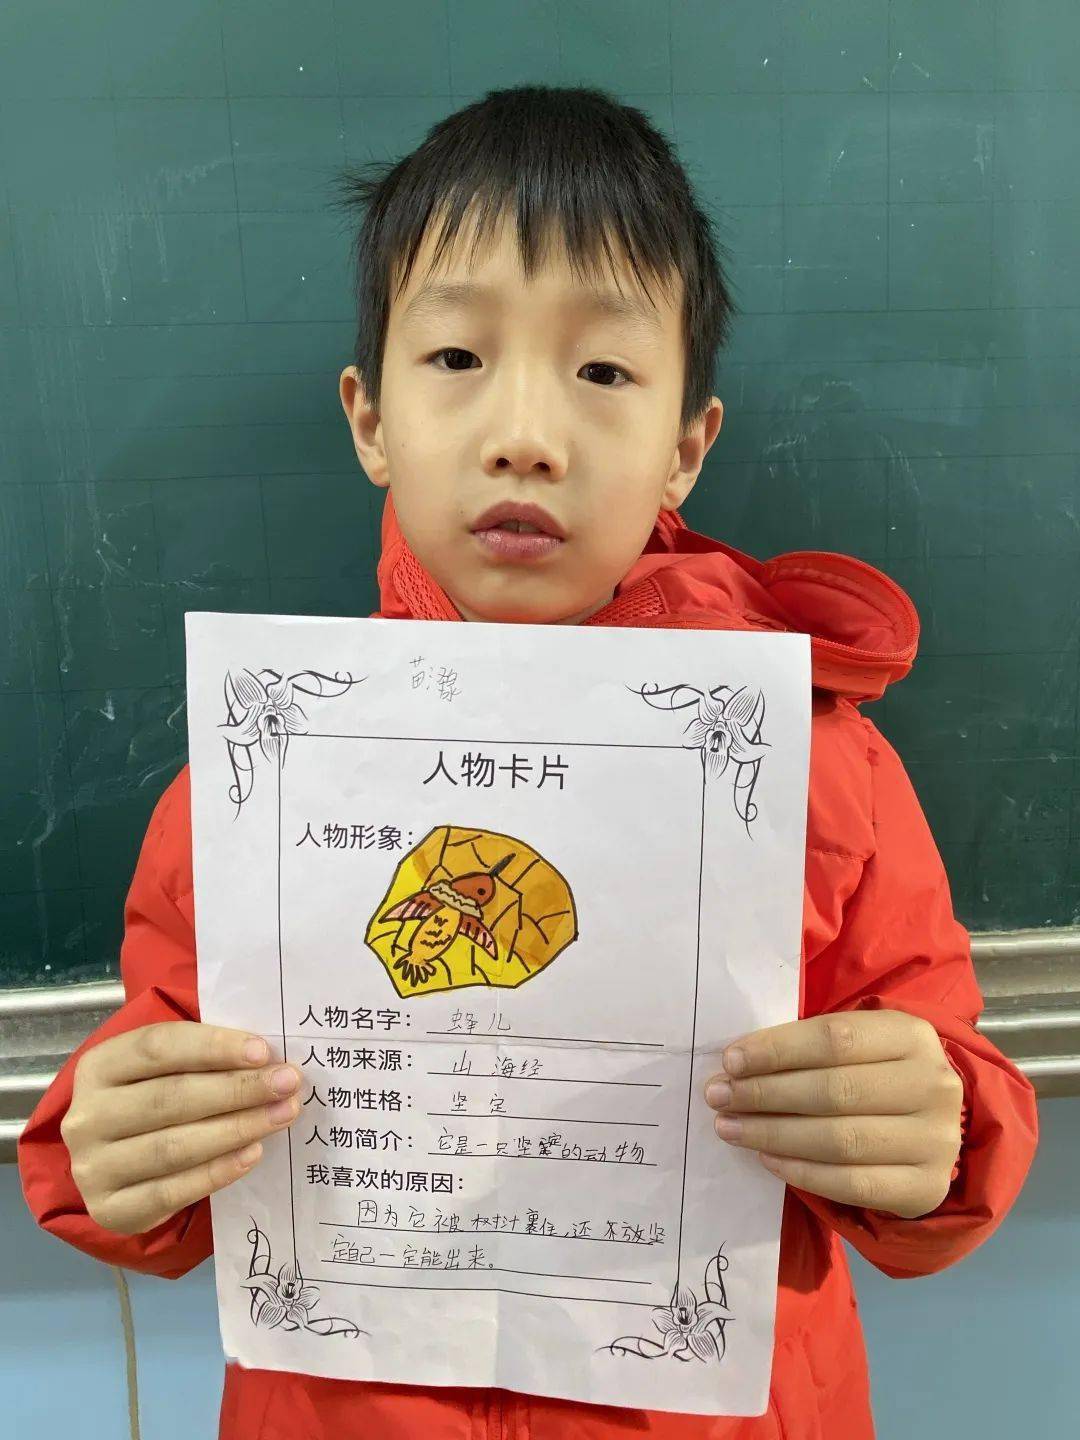 人物卡片
人物形象:
人物名字: 蜂儿
人物来源: 山海经
人物性格: 坚定
人物简介: 它是一只坚的动物
我喜欢的原因:
因为它被树汁裹住,还不放坚
定自己一定能出来。